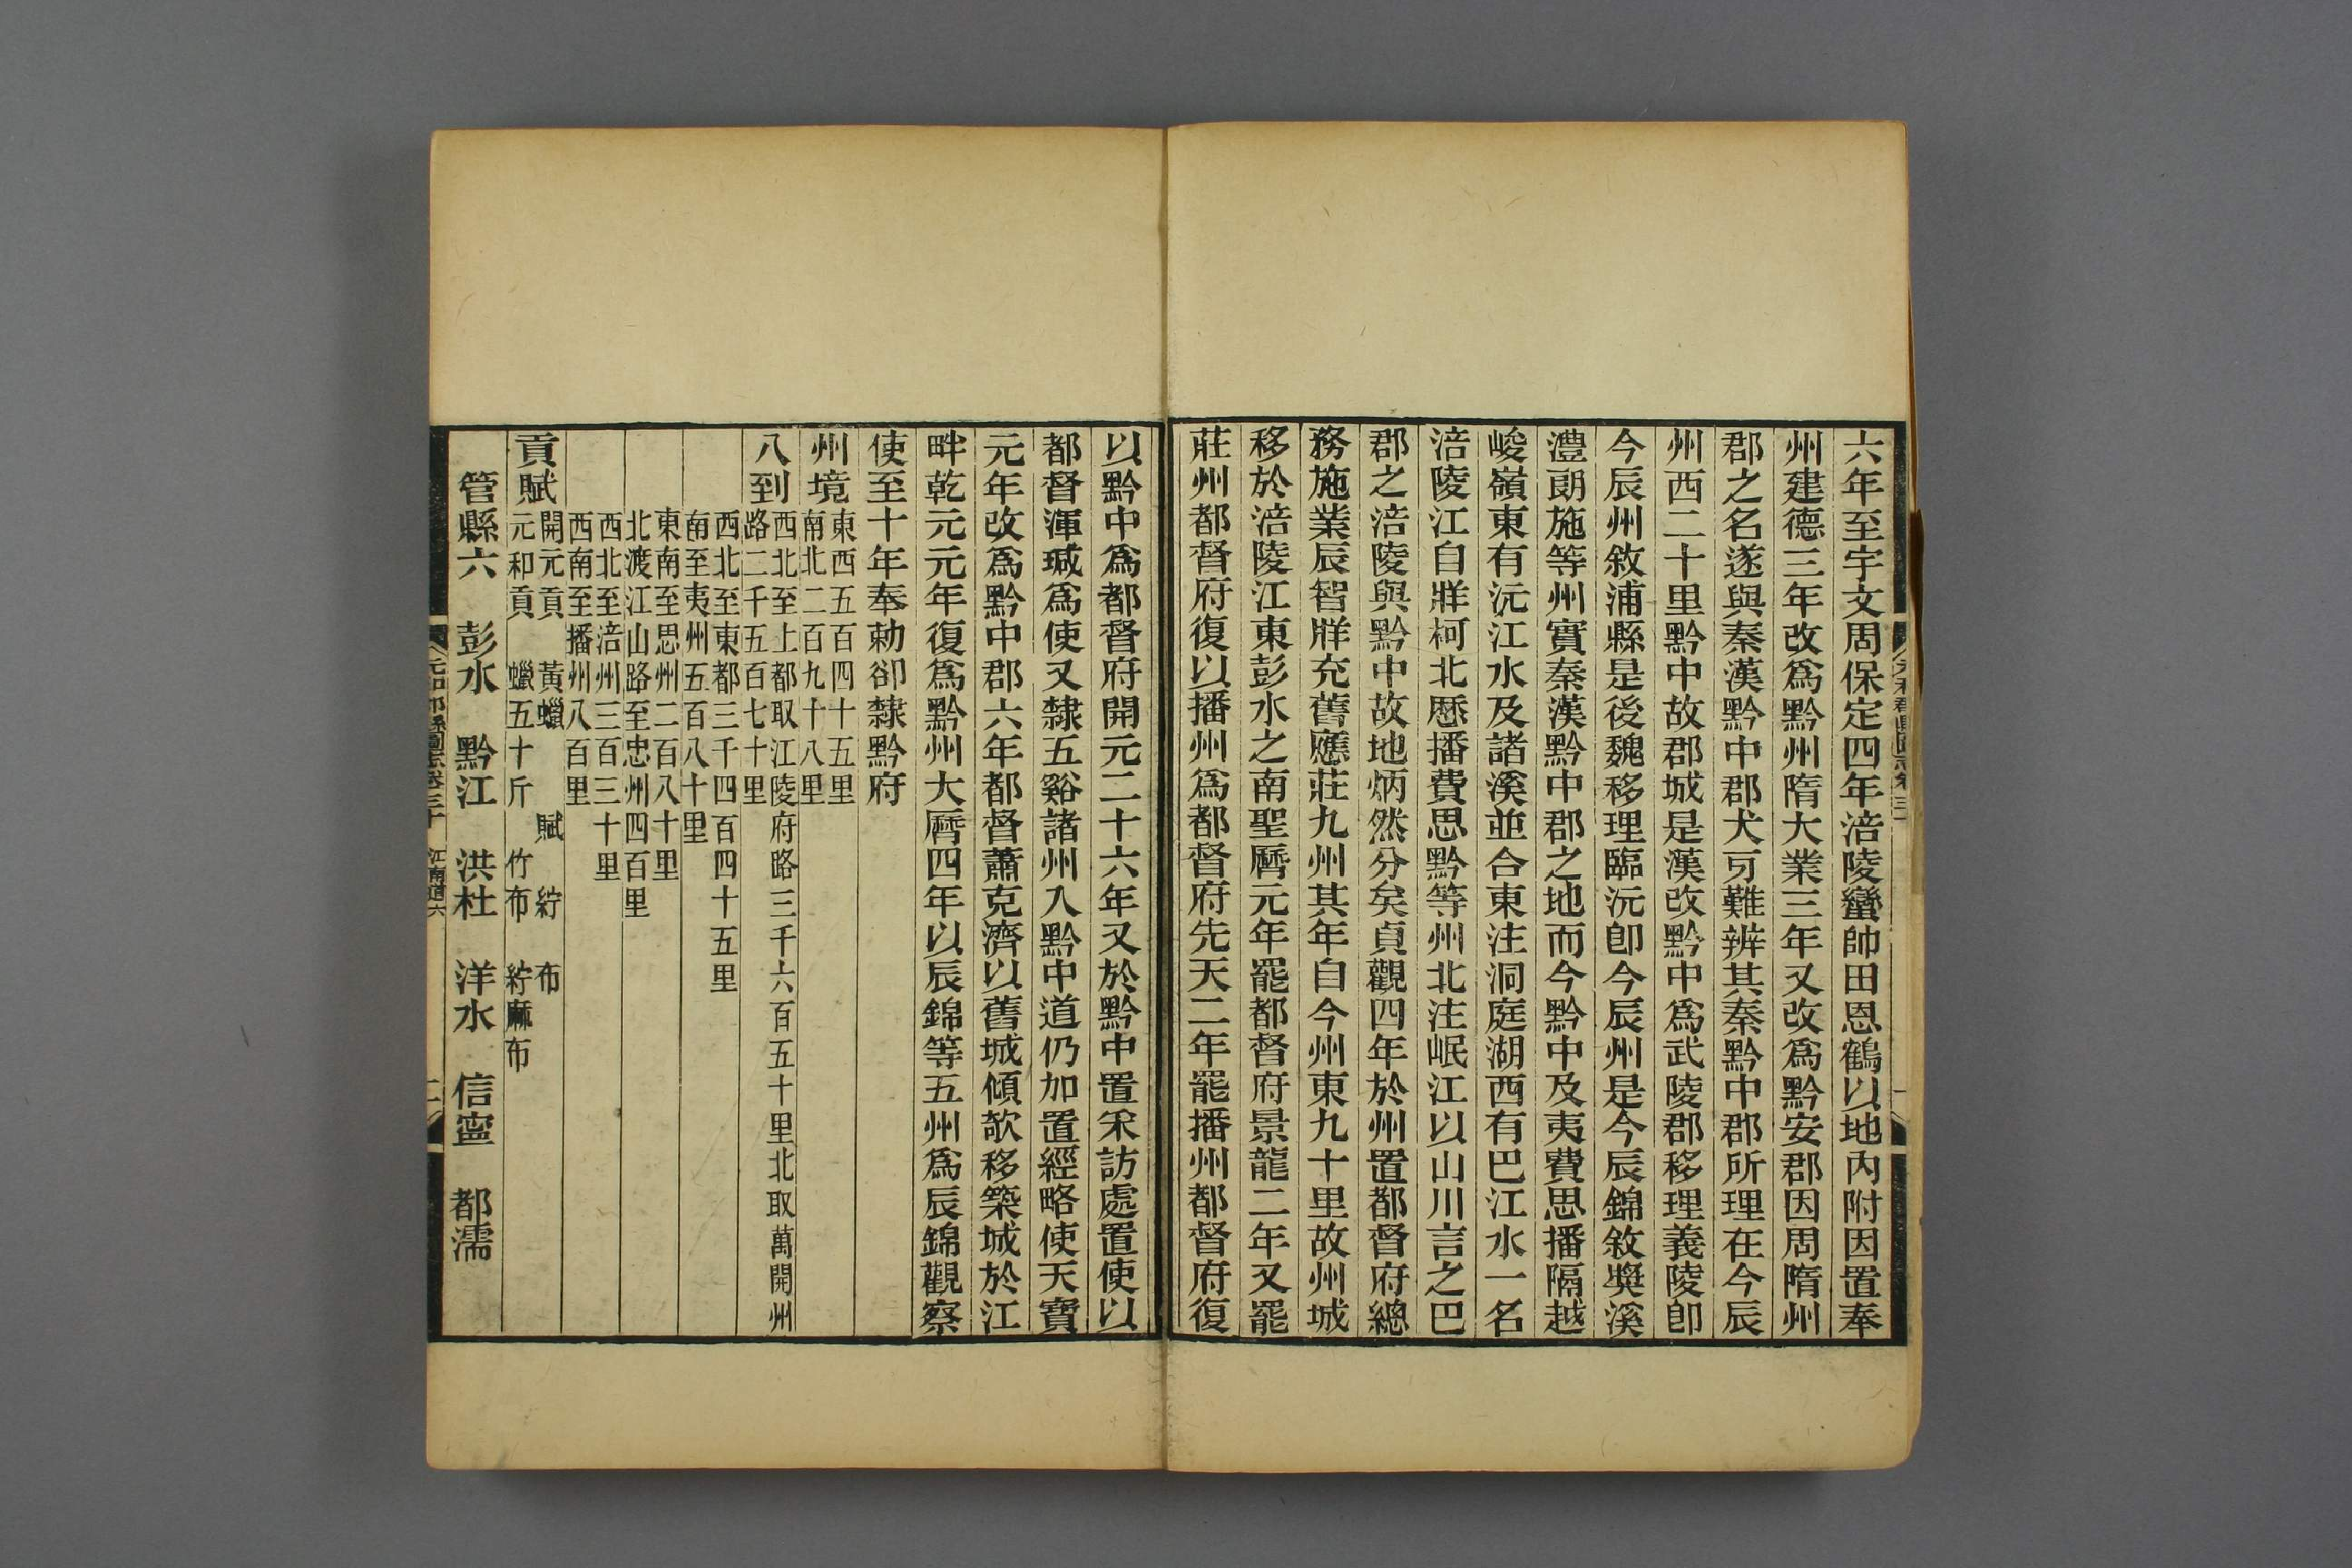 六年至宇文周保定四年涪陵蠻帥田恩鶴以地內附因置奉
州建德三年改爲黔州隋大業三年又改爲黔安郡因周隋州
郡之名遂與秦漢黔中郡犬牙難辨其秦黔中郡所理在今辰
州西二十里黔中故郡城是漢改黔中爲武陵郡移理義陵卽
今辰州敘浦縣是後魏移理臨沅卽今辰州是今辰錦敘奬溪
澧朗施等州實秦漢黔中郡之地而今黔中及夷費思播隔越
峻嶺東有沅江水及諸溪並合東注洞庭湖西有巴江水一名
涪陵江自牂柯北歷播費思黔等州北注岷江以山川言之巴
郡之涪陵與黔中故地炳然分矣貞觀四年於州置都督府總
務施業辰智牂充舊應莊九州其年自今州東九十里故州城
移於涪陵江東彭水之南聖曆元年罷都督府景龍二年又罷
莊州都督府復以播州爲都督府先天二年罷播州都督府復
以黔中爲都督府開元二十六年又於黔中置采訪處置使以
都督渾瑊爲使又隸五谿諸州入黔中道仍加置經略使天寶
元年改爲黔中郡六年都督蕭克濟以舊城傾欹移築城於江
畔乾元元年復爲黔州大曆四年以辰錦等五州爲辰錦觀察
使至十年奉勅卻隸黔府
州境
東西五百四十五里
南北二百九十八里
八到
西北至上都取江陵府路三千六百五十里北取萬開州
路二千五百七十里
西北至東都三千四百四十五里
南至夷州五百八十里
東南至思州二百八十里
北渡江山路至忠州四百里
西北至涪州三百三十里
西南至播州八百里
貢賦
開元貢 黃蠟 賦 紵布
元和貢 蠟五十斤 竹布 紵麻布
管縣六 彭水 黔江 洪杜 洋水 信寧 都濡
元和郡縣圖志卷三十 江南道六 二